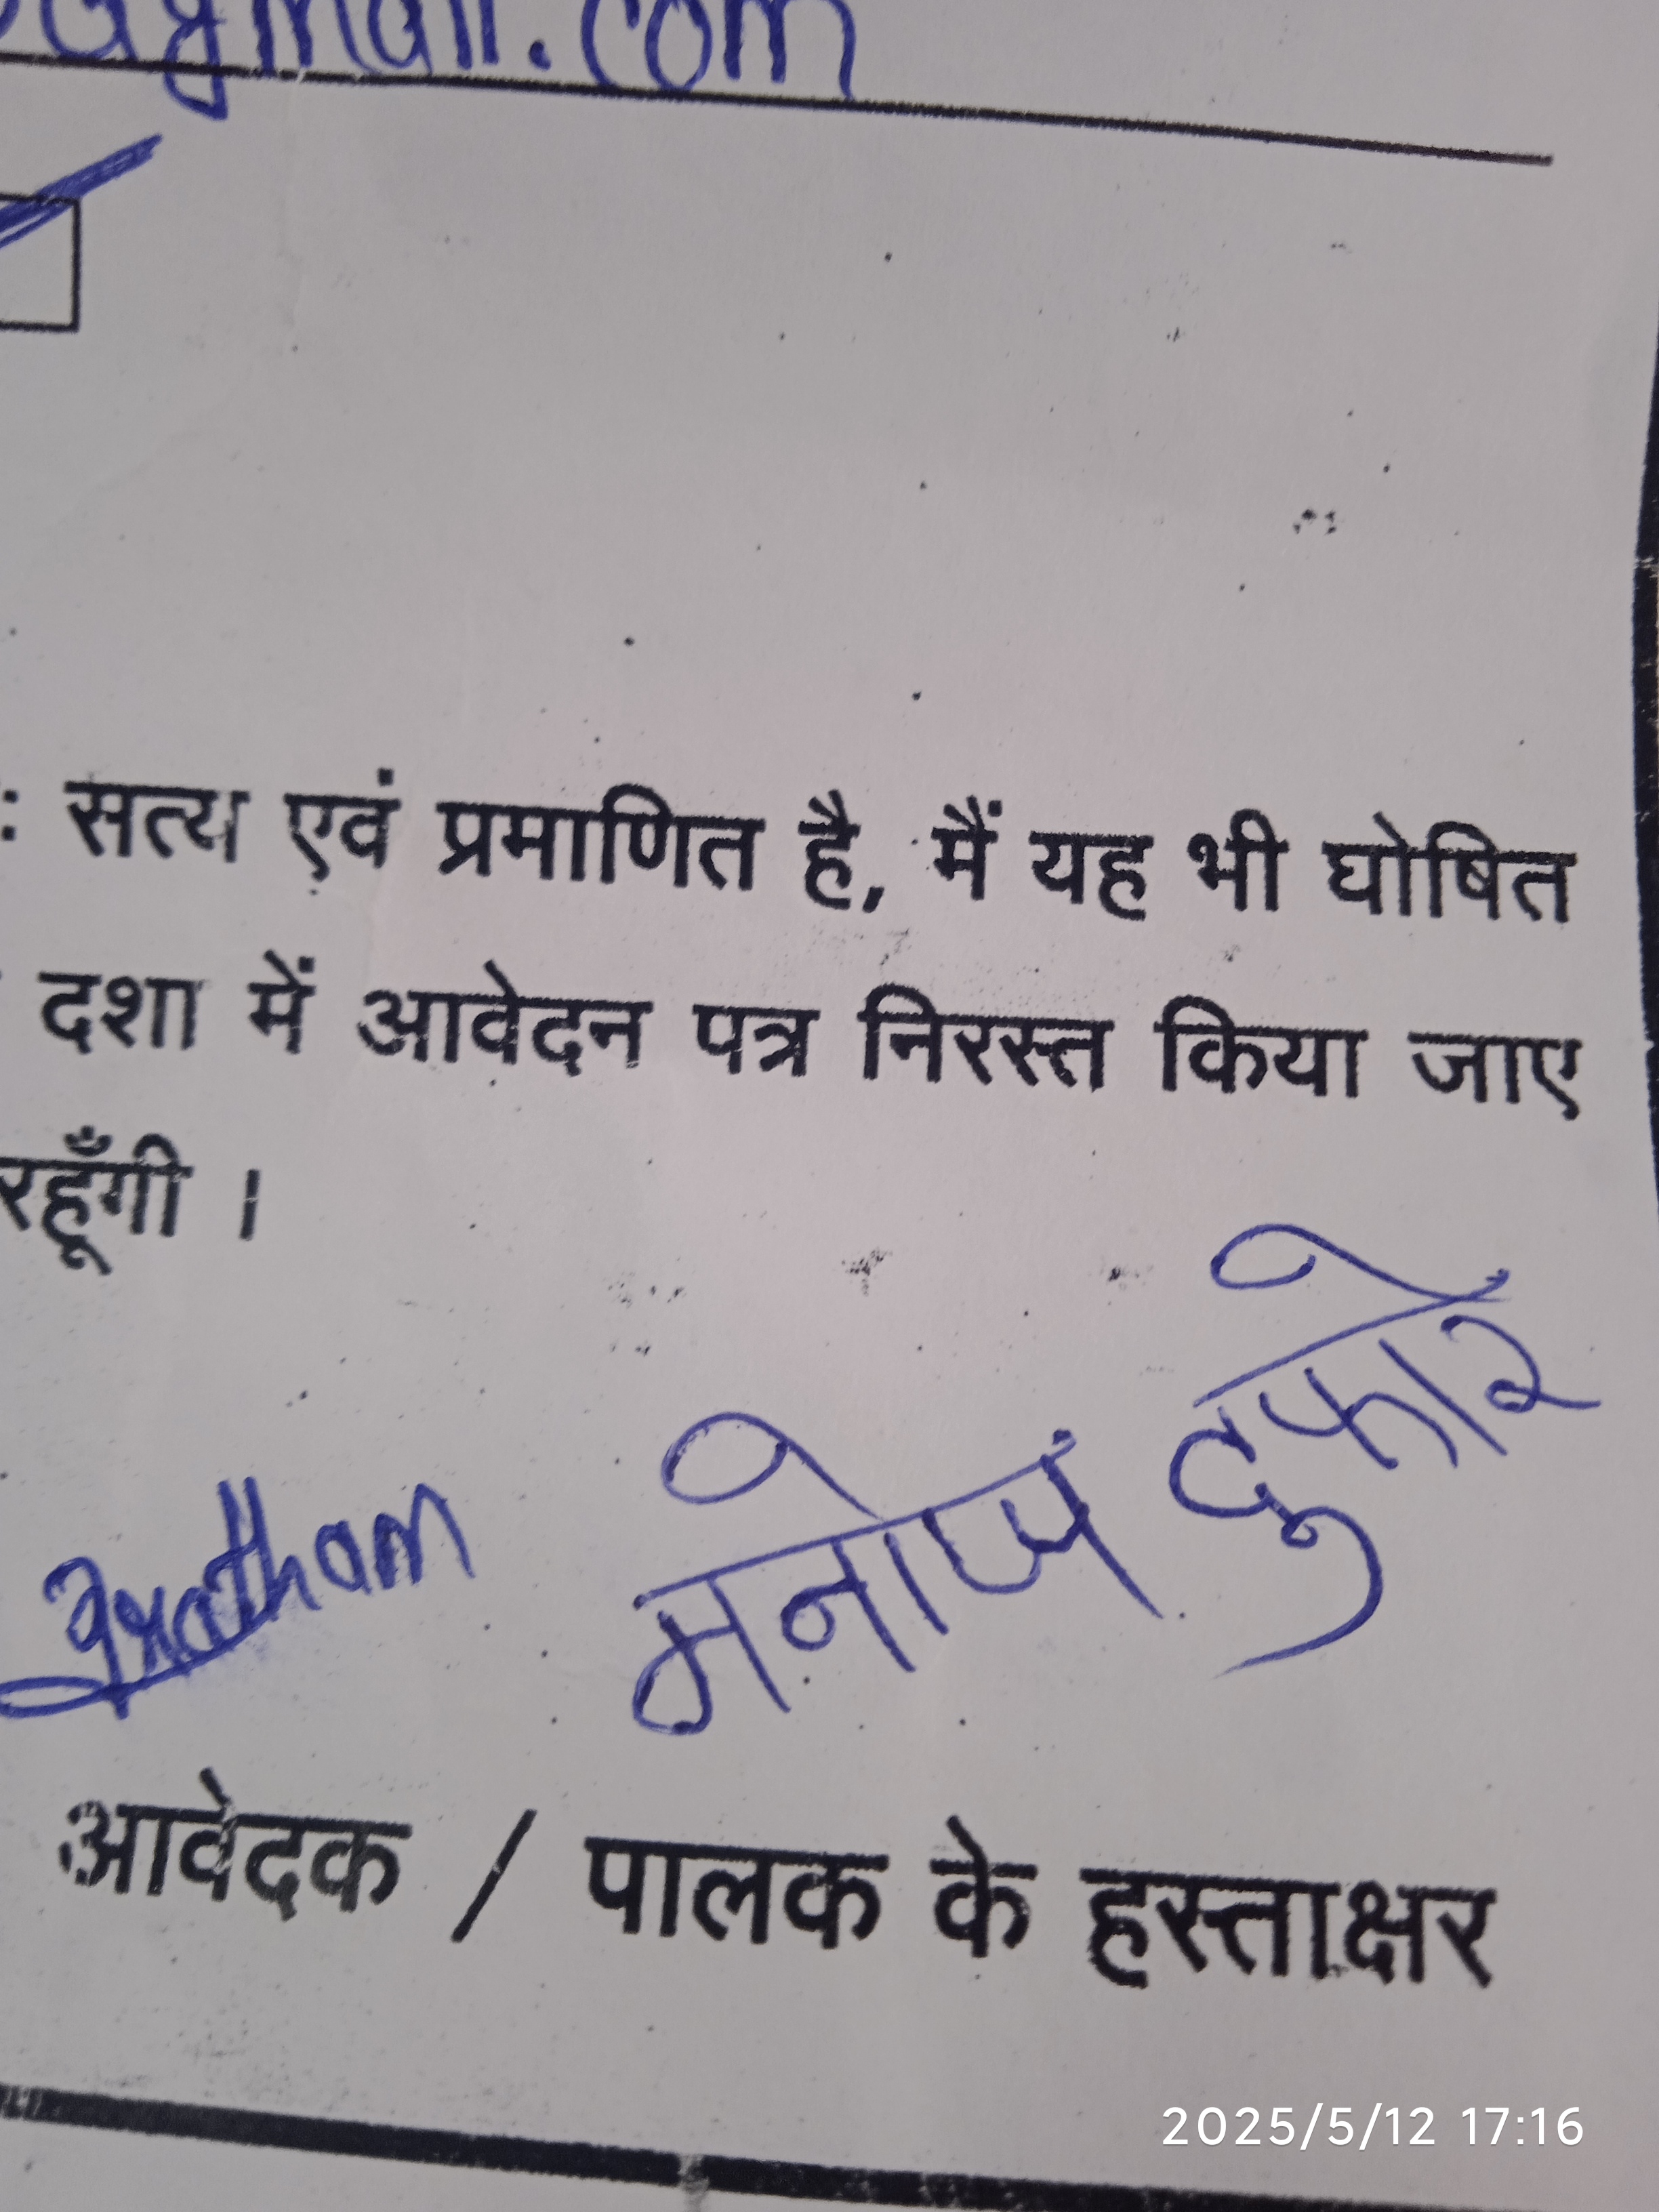 @gmail.com
: सत्य एवं प्रमाणित है, मैं यह भी घोषित
दशा में आवेदन पत्र निरस्त किया जाए
रहूँगी ।
Pratham दुफारे
आवेदक / पालक के हस्ताक्षर
2025/5/12 17:16